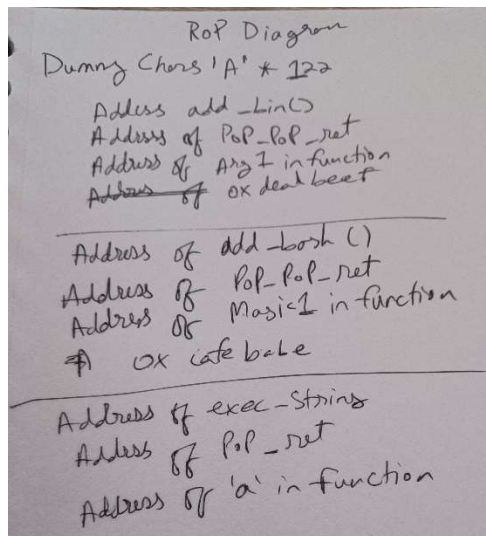 ROP Diagram
Dummy Chars 'A' * 122
Address add_bin()
Address of POP_POP_ret
Address of Arg1 in function
Address of 0x deadbeef
Address of add_bash ()
Address of POP_POP_ret
Address of Magic1 in function
0x cafe babe
Address of exec_string
Address of POP_ret
Address of 'a' in function